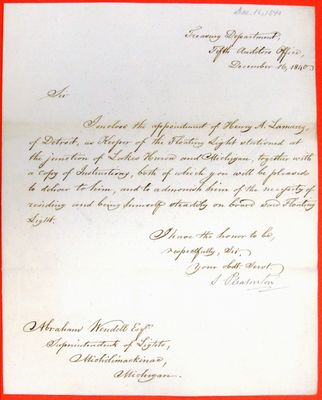 Dec. 16, 1840
Treasury Department,
Fifth Auditors Office,
December 16, 1840.
Sir
I enclose the appointment of Henry A.
of Detroit, as Keeper of the Floating Light stationed at
the junction of Lakes Huron and Michigan, together with
a copy of Instructions, both of which you will be pleased
to deliver to him, and to admonish him of the necessity of
residing and being himself steadily on board said Floating
Light.
I have the honor to be,
respectfully, Sir,
Your Obt. Servt.
S Pleasonton
Abraham Wendell Esqr.
Superintendent of Lights,
Michilimackinac,
Michigan.